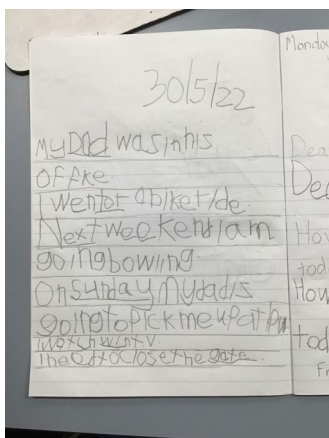 30/5/22
My Dad was in his
OFFice
I went for a bike ride.
Next weekend I am
going bowling
On Sunday My dad is
going to pick me up at 1pm
I watch win t.v.
I need to close the gate.
Monda
Dea
Dea
How
tod
How
tod
Fr